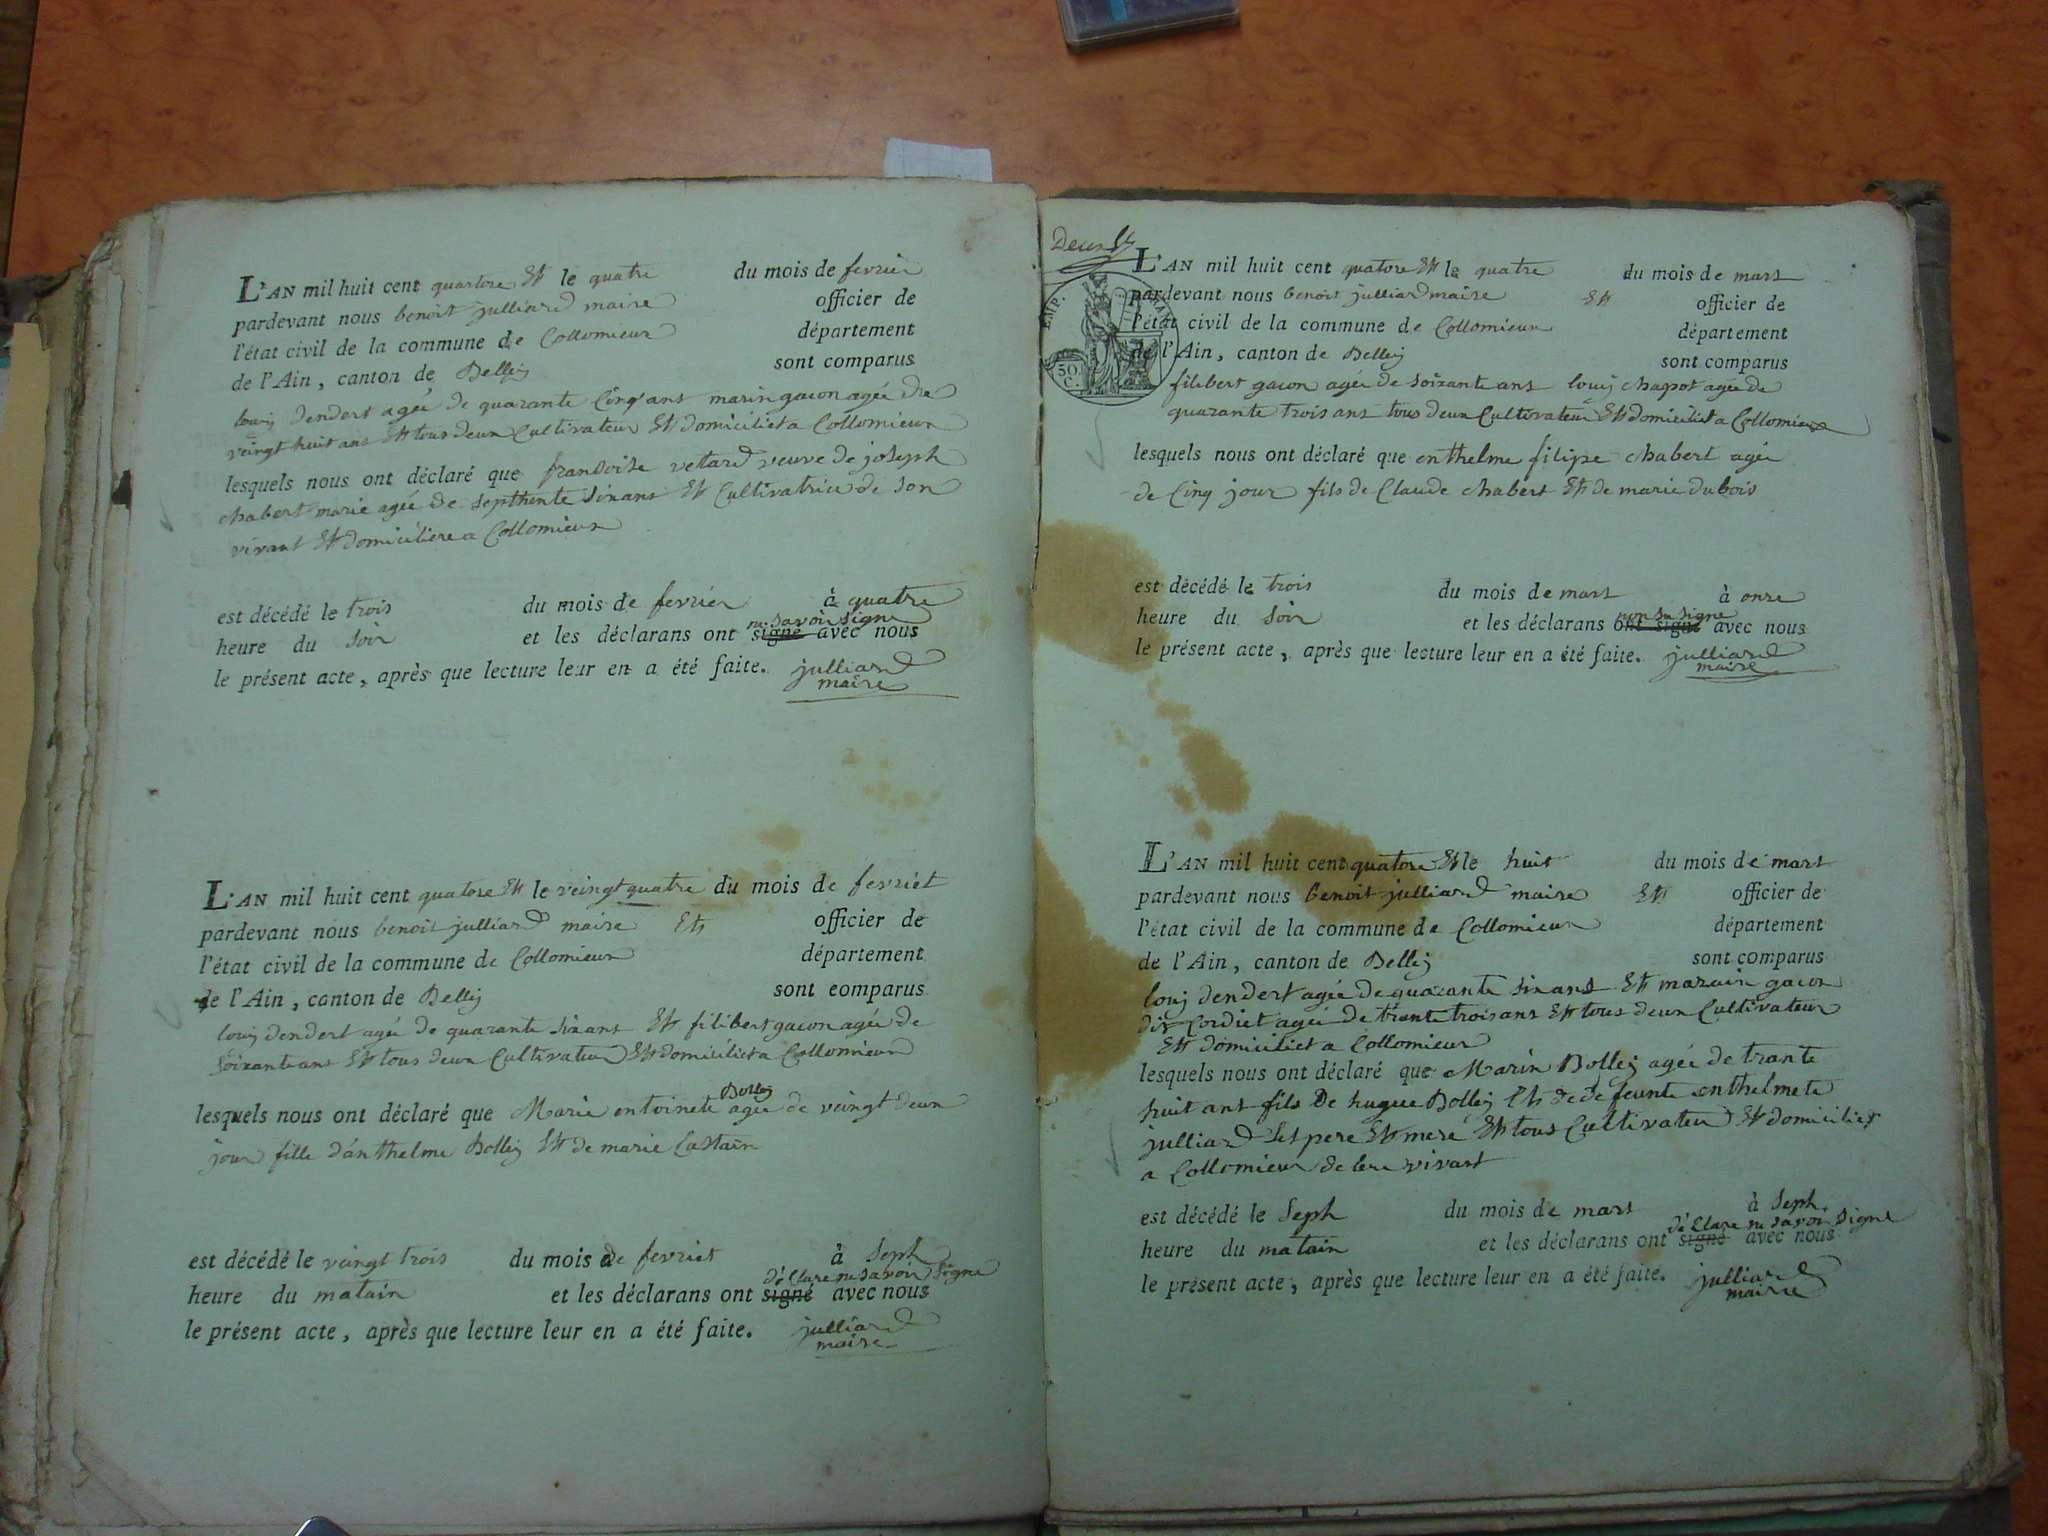 L'AN mil huit cent quartore Et le quatre du mois de fevrier
pardevant nous benoit julliard maire officier de
l'état civil de la commune de Collomieux département
de l'Ain, canton de Belley sont comparus
louij dendert agée de quarante Cinq ans marin gacon agée de
veingt huit ans Et tous deux Cultivateur Et domiciliet a Collomieux
lesquels nous ont déclaré que fransoise vettard veuve de joseph
chabert marie agée de septhente sixans Et Cultivatrice de son
vivant Et domiciliere a Collomieux
est décédé le trois du mois de fevrier à quatre
heure du soir et les déclarans ont signé ne savoir signe avec nous
le présent acte, après que lecture leur en a été faite. julliard
maire
L'AN mil huit cent quatore Et le veingt quatre du mois de fevriet
pardevant nous benoit julliard maire Et officier de
l'état civil de la commune de Collomieux département
de l'Ain, canton de Belley sont comparus
louij dendert agée de quarante sixans Et filibert gacon agée de
soixante ans Et tous deux Cultivateur Et domiciliet a Collomieux
lesquels nous ont déclaré que Marie entoinete Bolley agée de veingt deux
jour fille d'anthelme Bolley Et de marie Castain
est décédé le veingt trois du mois de fevriet à seph
heure du matain et les déclarans ont signé déClare ne savoir signe avec nous
le présent acte, après que lecture leur en a été faite. julliard
maire
L'AN mil huit cent quatore Et le quatre du mois de mars
pardevant nous benoit julliard maire Et officier de
l'état civil de la commune de Collomieux département
de l'Ain, canton de Belley sont comparus
EMP.
50
C.
filibert gacon agée de soixante ans louij chapot agée de
quarante trois ans tous deux Cultivateur Et domiciliet a Collomieux
lesquels nous ont déclaré que enthelme filipe chabert agée
de Cinq jour fils de Claude chabert Et de marie dubois
est décédé le trois du mois de mars à onze
heure du soir et les déclarans ont signé non su signe avec nous
le présent acte, après que lecture leur en a été faite. julliard
maire
L'AN mil huit cent quatore Et le huit du mois de mars
pardevant nous benoit julliard maire Et officier de
l'état civil de la commune de Collomieux département
de l'Ain, canton de Belley sont comparus
louij dendert agée de quarante sixans Et marain gacon
dit Cordiet agée de trante trois ans Et tous deux Cultivateur
Et domiciliet a Collomieux
lesquels nous ont déclaré que Marin Bolley agée de trante
huit ans fils De hugue Bolley Et de de feunte enthelmete
julliard ses pere Et mere Et tous Cultivateur Et domiciliet
a Collomieux de leur vivant
est décédé le Seph du mois de mars à Seph
heure du matain et les déclarans ont signé déClare ne savoir signe avec nous
le présent acte, après que lecture leur en a été faite. julliard
maire